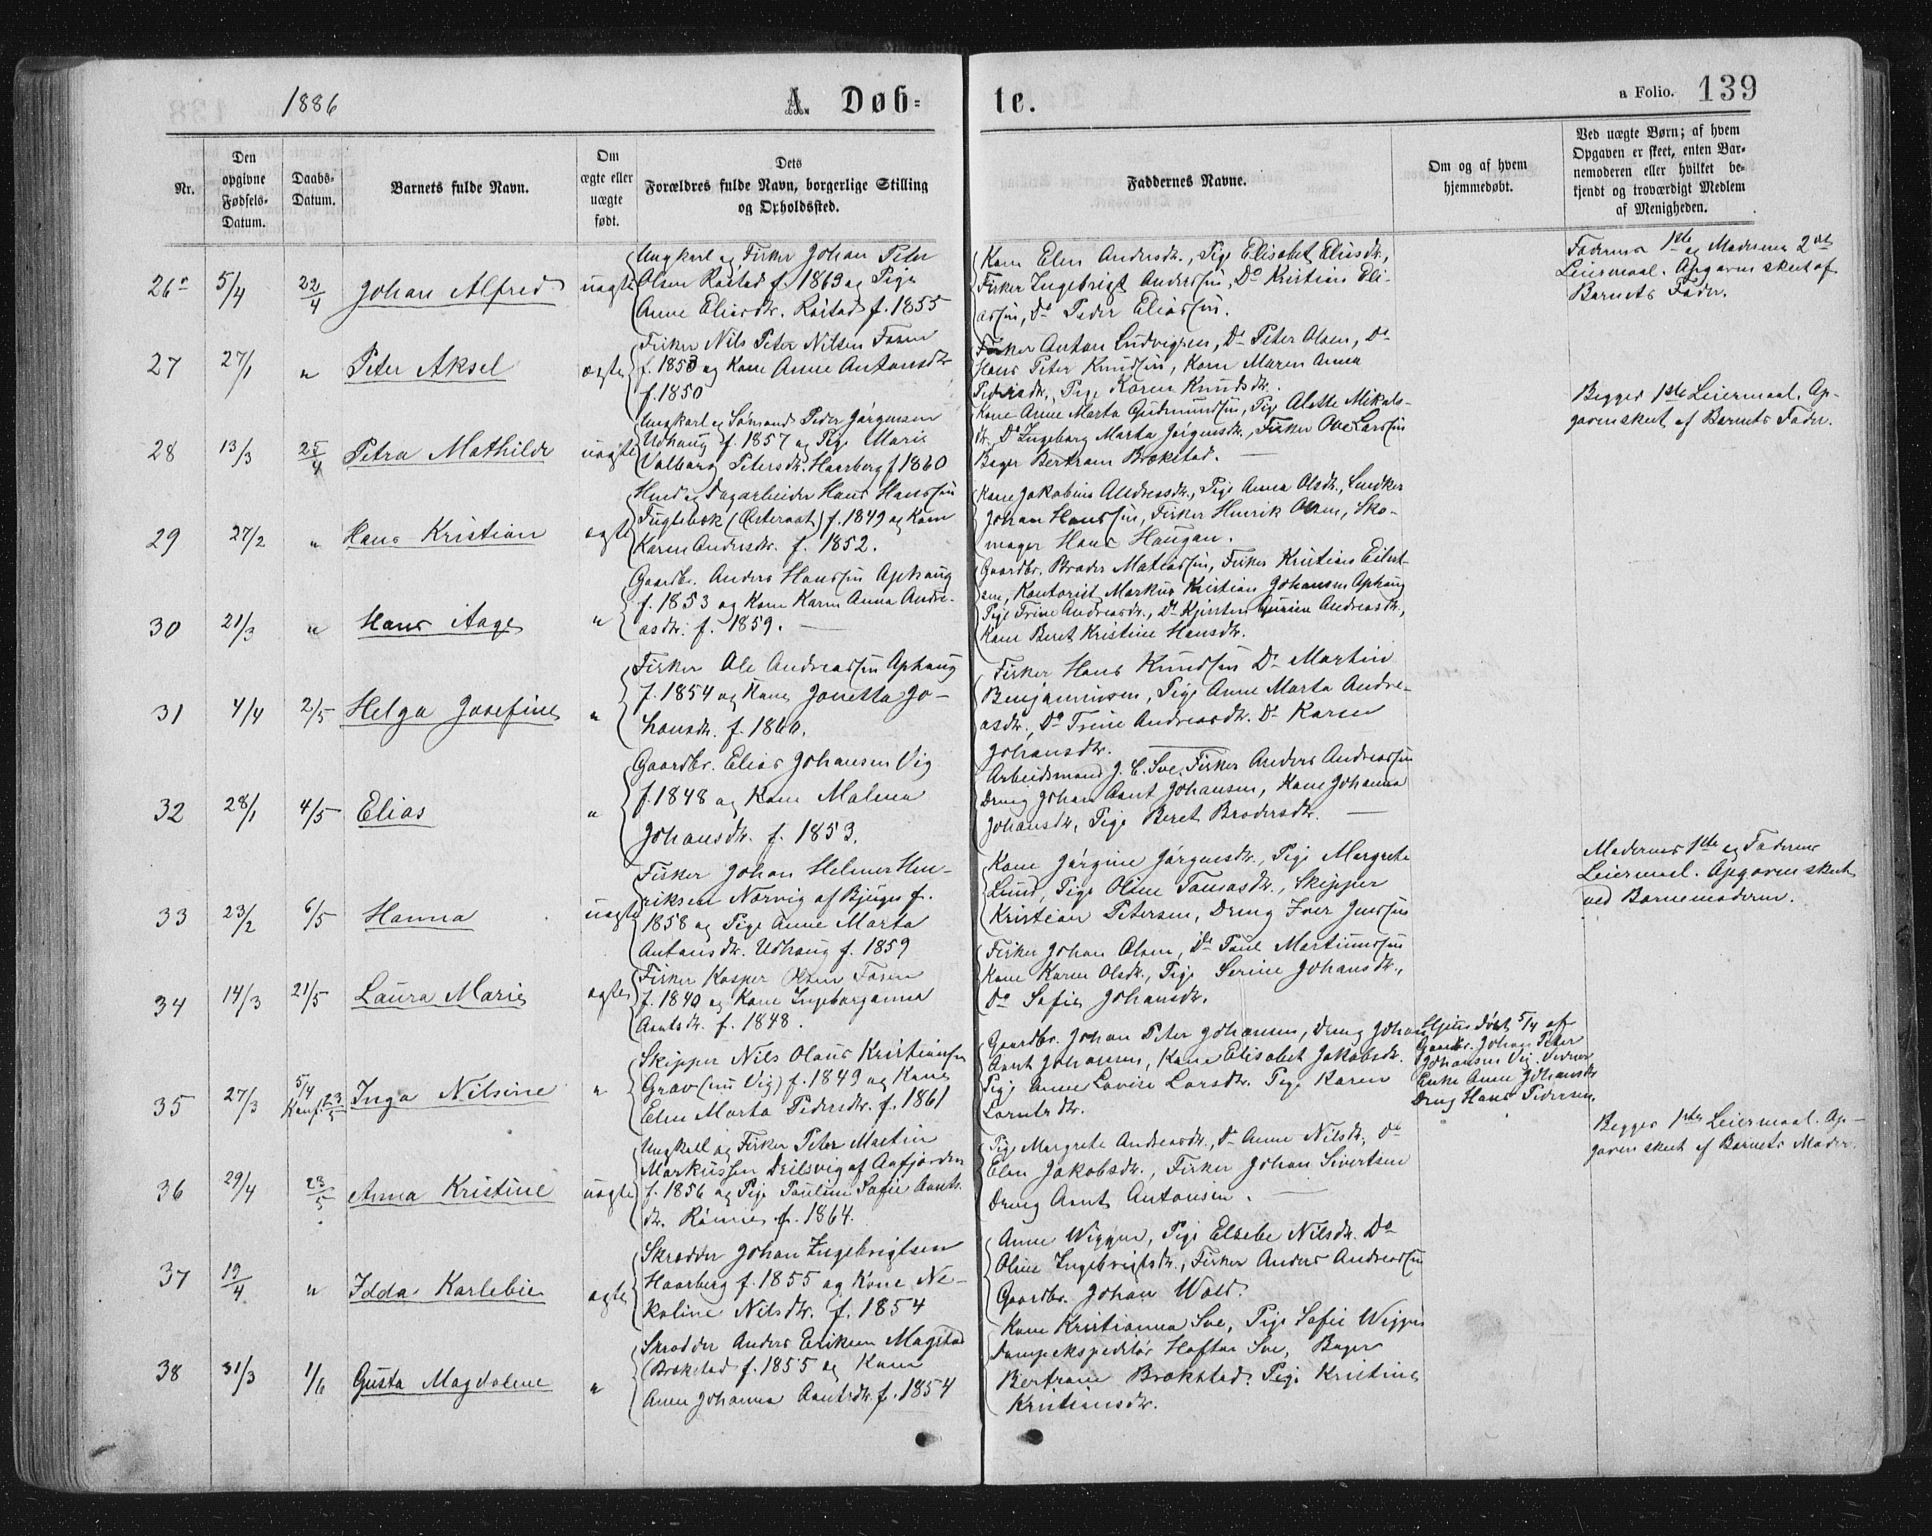 1886
A. Døb-
te.
a Folio. 139
Nr.
Den
opgivne
Fødsels-
Datum.
Daabs-
Datum.
Barnets fulde Navn.
Om
ægte eller
uægte
født.
Dets
Forældres fulde Navn, borgerlige Stilling
og Opholdssted.
Faddernes Navne.
Om og af hvem
hjemmedøbt.
Ved uægte Børn; af hvem
Opgaven er skeet, enten Bar-
nemoderen eller hvilket be-
kjendt og troværdigt Medlem
af Menigheden.
26 5/4 22/4 Johan Alfred uægte
Ungkarl og Fisker Johan Peter
Olsen Røstad f. 1863 og Pige
Anne Eliasdtr. Røstad f. 1855
Kone Elen Andersdtr., Pige Elisabet Eliasdtr.,
Fisker Ingebrigt Anderssen, Do Kristian Eli-
assen, Do Peder Eliassen.
Faderens 1ste og Moderens 2det
Leiermaal. Opgaven skeet af
Barnets Fader.
27 27/1 " Peter Aksel ægte
Fisker Nils Peter Nilsen Fosen
f. 1853 og Kone Anne Antonsdtr
f. 1850
Fisker Anton Ludvigsen, Do Peter Olsen, Do
Hans Peter Knudsen, Kone Maren Anna
Pedersdtr., Pige Karen Knudsdtr.
28 13/3 25/4 Petra Mathilde uægte
Ungkarl og Sømand Peder Jørgensen
Udhaug f. 1857 og Pige Marie
Valborg Petersdtr. Haarberg f 1860
Kone Anne Marta Gudmundsen, Pige Alette Mikals-
dtr, Do Ingeborg Marta Jørgensdtr., Fisker Ole Larssen
Bager Bertram Brekstad.
Begges 1ste Leiermaal. Op-
gaven skeet af Barnets Fader.
29 27/2 " Hans Kristian ægte
Husmd og Dagarbeider Hans Hanssen
Fuglebæk (Østeraat) f. 1849 og Kone
Karen Andersdtr. f. 1852.
Kone Jakobine Andreasdtr., Pige Anna Olsdtr., Snedker
Johan Hanssen, Fisker Henrik Olsen, Sko-
mager Hans Haugan.
30 21/3 " Hans Aage "
Gaardbr. Anders Hanssen Ophaug
f. 1853 og Kone Karen Anna Andre-
asdtr. f. 1859.
Gaardbr. Broder Matiassen, Fisker Kristian Eilert-
sen, Kontorist Markus Kristian Johansen Ophaug
Pige Trine Andreasdtr., Do Kjersten Gurine Andreasdtr,
Kone Beret Kristine Hansdtr.
31 4/4 2/5 Helga Josefine "
Fisker Ole Andreassen Ophaug
f. 1854 og Kone Jonetta Jo-
hansdtr. f. 1860.
Fisker Hans Knudsen Do Martin
Benjaminsen, Pige Anne Marta Andre-
asdtr., Do Trine Andreasdtr. Do Karen
Johansdtr.
32 28/1 4/5 Elias "
Gaardbr. Elias Johansen Vig
f. 1848 og Kone Malena
Johansdtr. f. 1853.
Arbeidsmand J. C. Sve, Fisker Anders Andreassen
Dreng Johan Arnt Johansen, Kone Johanna
Johansdtr, Pige Beret Brodersdtr.
33 23/2 6/5 Hanna uægte
Fisker Johan Helmer Hen-
riksen Nørvig af Bjugn f.
1858 og Pige Anne Marta
Antonsdtr. Udhaug f. 1859
Kone Jørgine Jørgensdtr., Pige Margrete
Lund, Pige Oline Tomasdtr., Skipper
Kristian Petersen, Dreng Iver Jenssen
Moderens 1ste og Faderens
Leiermaal. Opgaven skeet
ved Barnemoderen.
34 14/3 21/5 Laura Marie ægte
Fisker Kasper Olsen Fosen
f. 1840 og Kone Ingeborganna
Arntsdtr. f. 1848.
Fisker Johan Olsen, Do Paul Martinussen
Kone Karen Olsdtr., Pige Serine Johansdtr.,
Do Sofie Johansdtr.
35 27/3 5/4 Konf. 23/5 Inga Nilsine "
Skipper Nils Olaus Kristiansen
Grav (nu Vig) f. 1849 og Kone
Elen Marta Pedersdtr. f. 1861
Gaardbr. Johan Peter Johansen, Dreng Johan
Arnt Johansen, Kone Elisabet Jakobsdtr.
Pige Anne Lovise Larsdtr. Pige Karen
Lorntsdtr.
Hjemdøbt 5/4 af
Gaardbr. Johan Peter
Johansen Vig. Vidner
Enke Anne Johansdtr
Dreng Hans Pedersen.
36 29/4 23/5 Anna Kristine uægte
Ungkarl og Fisker Peter Martin
Markussen Deilsvig af Aafjorden
f. 1856 og Pige Pauline Sofie Arnts-
dtr. Rønnes f. 1864.
Pige Margrete Andreasdtr., Do Anne Nilsdtr., Do
Elen Jakobsdtr., Fisker Johan Sivertsen
Dreng Arnt Antonsen.
Begges 1ste Leiermaal. Op-
gaven skeet af Barnets Moder.
37 19/4 " Idda Karlebie ægte
Skrædder Johan Ingebrigtsen
Haarberg f. 1855 og Kone Ne-
koline Nilsdtr. f. 1854
Anne Wiggen, Pige Elsebe Nilsdtr. Do
Oline Ingebrigtsdtr., Fisker Anders Andreassen
Gaardbr. Johan Wold.
38 31/3 1/6 Gusta Magdalene "
Skrædder Anders Eriksen Magstad
Brekstad f. 1855 og Kone
Anen Johanna Arntsdtr f. 1854
Kone Kristianna Sve, Pige Sofie Wiggen
Dampekspeditør Haftor Sve, Bager
Bertram Brekstad. Pige Kristine
Kristiansdtr.